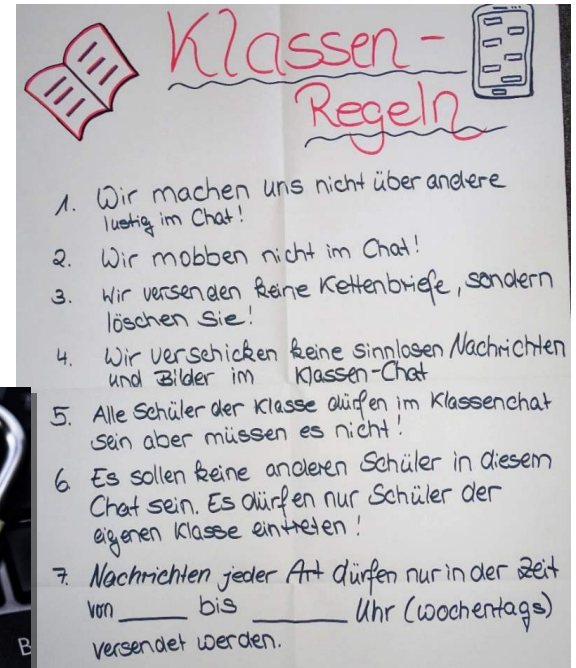 Klassen-
Regeln
1. Wir machen uns nicht über andere
lustig im Chat!
2. Wir mobben nicht im Chat!
3. Wir versenden keine Kettenbriefe, sondern
löschen Sie!
4. Wir verschicken keine sinnlosen Nachrichten
und Bilder im Klassen-Chat
5. Alle Schüler der Klasse dürfen im Klassenchat
sein aber müssen es nicht!
6. Es sollen keine anderen Schüler in diesem
Chat sein. Es dürfen nur Schüler der
eigenen Klasse eintreten!
7. Nachrichten jeder Art dürfen nur in der Zeit
von ______ bis ________ Uhr (wochentags)
versendet werden.
B